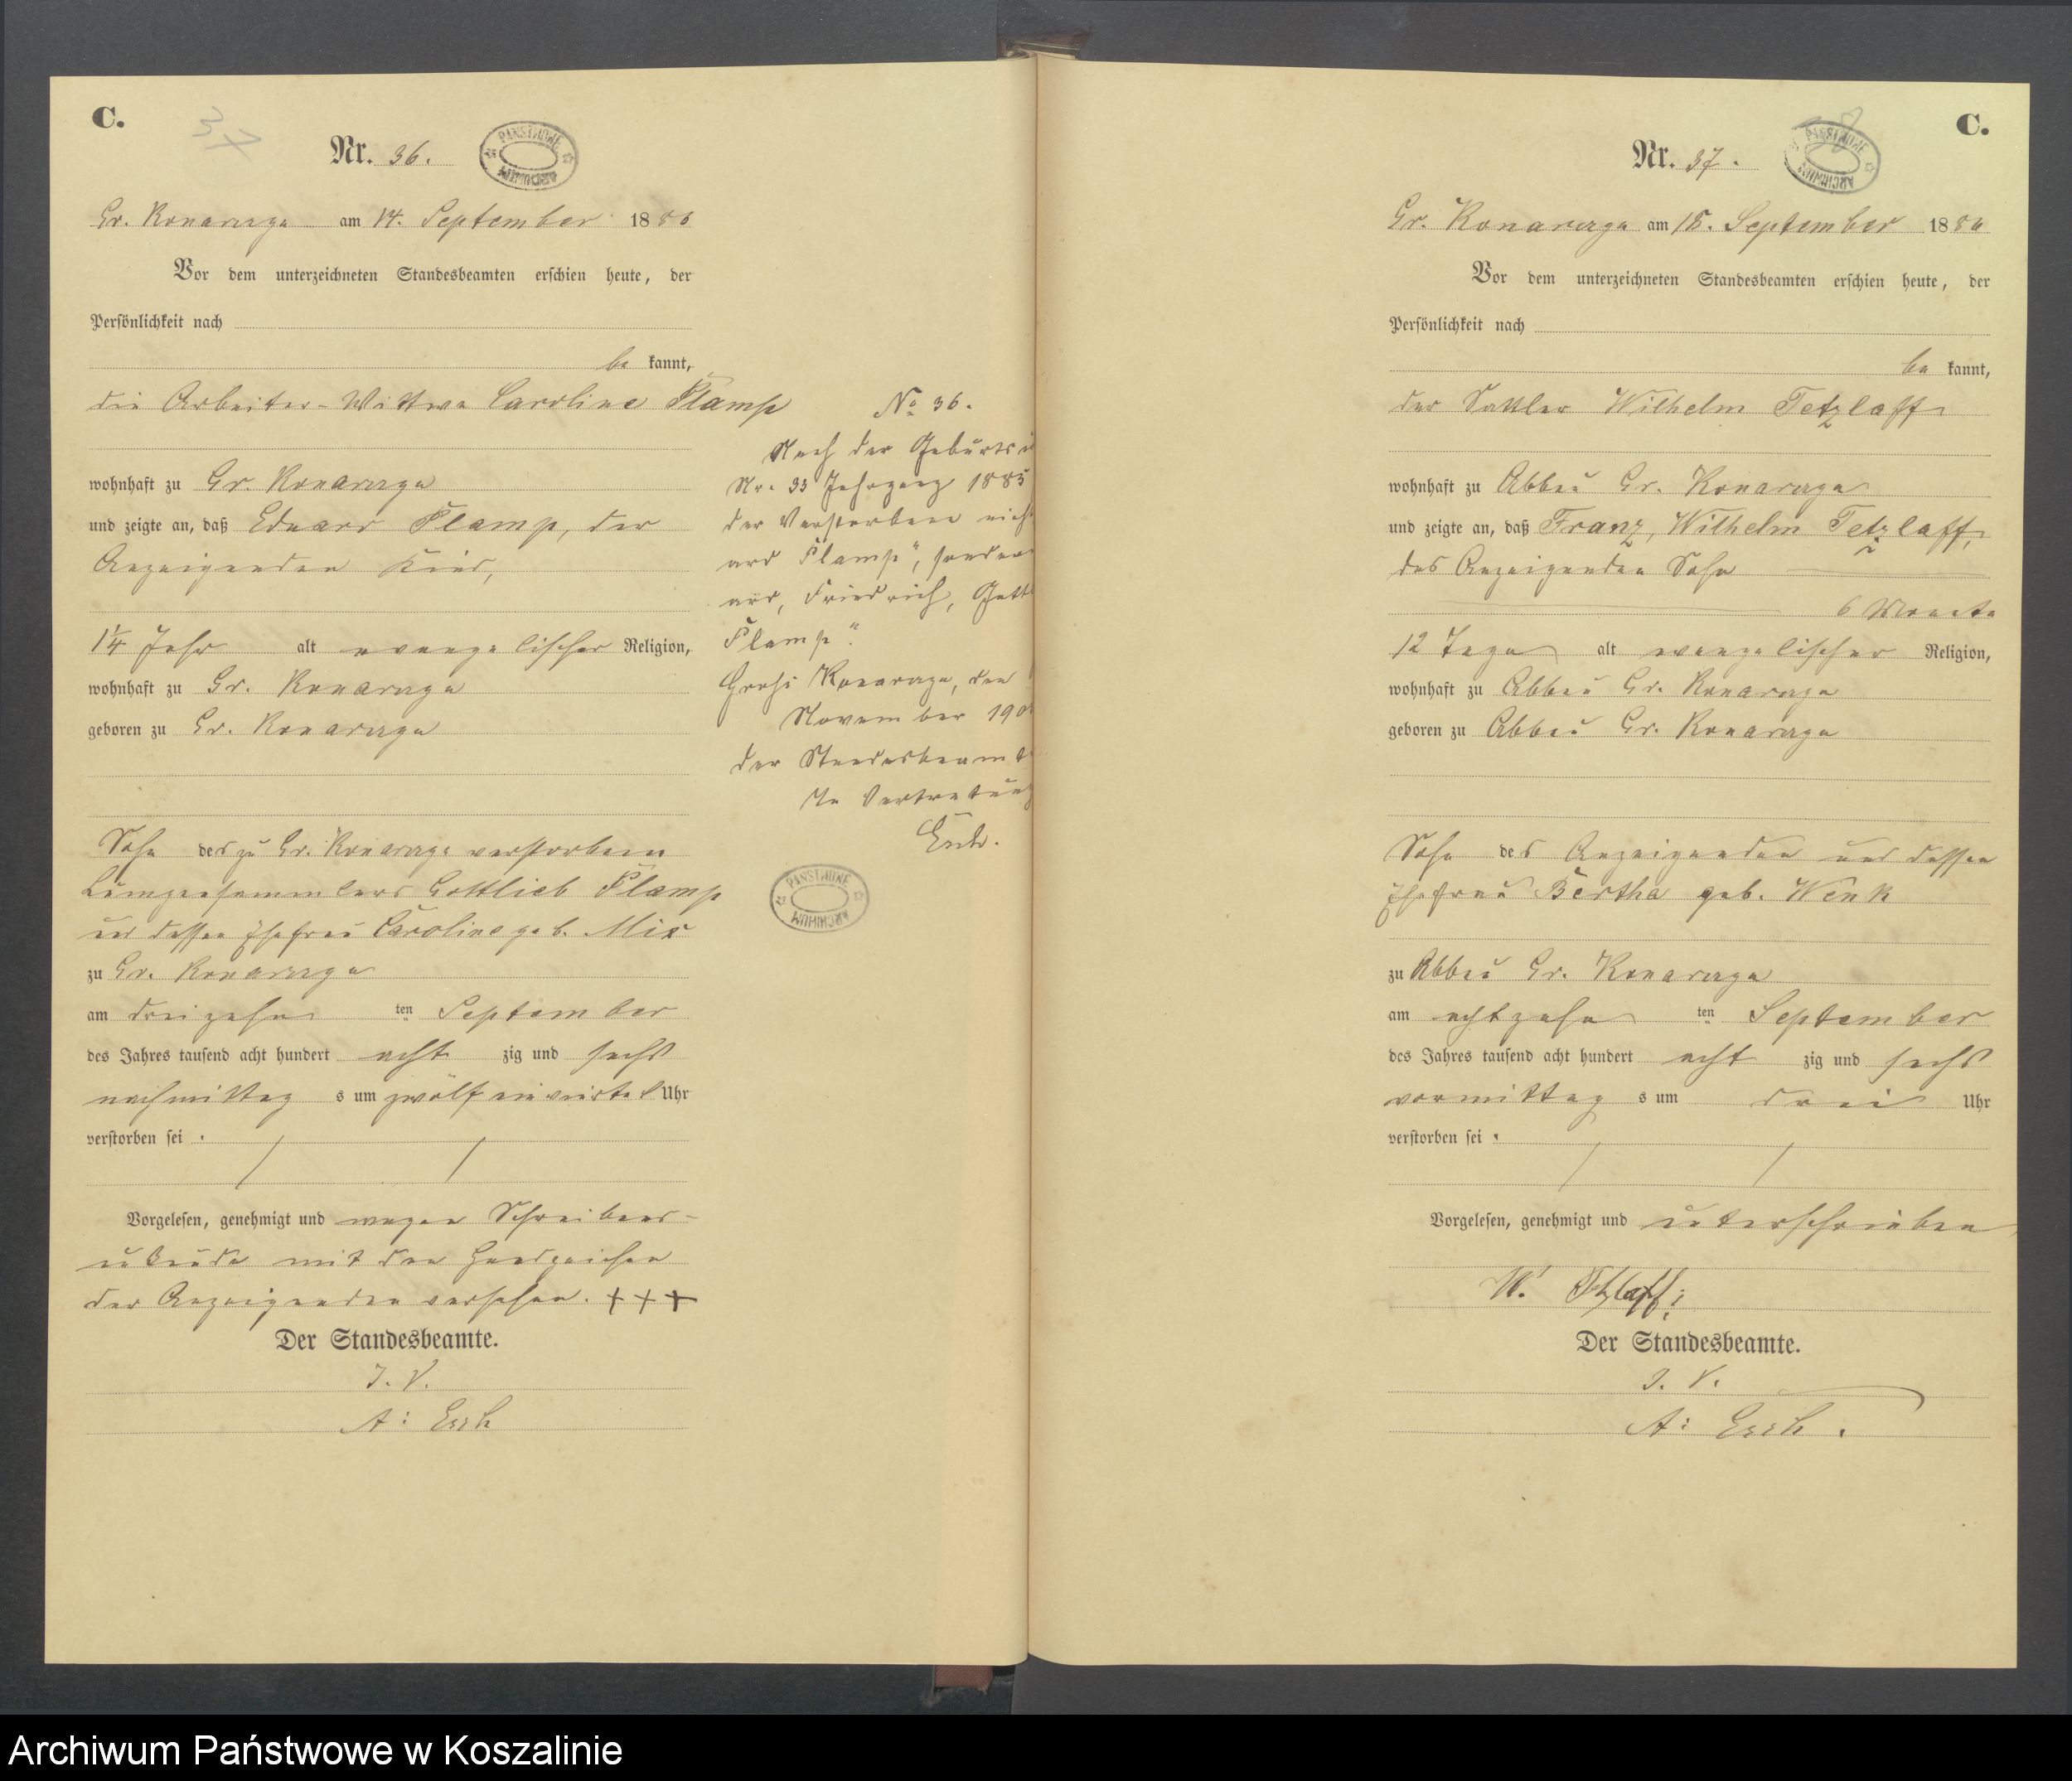 C.
37
Nr. 36.
PAŃSTWOWE ARCHIWUM
Gr. Konarczyn am 14. September 1886
Vor dem unterzeichneten Standesbeamten erschien heute, der
Persönlichkeit nach
be kannt,
die Arbeiter-Wittwe Caroline Flamp
wohnhaft zu Gr. Konarczyn
und zeigte an, daß Eduard Flamp, der
Anzeigenden Kind,
1¼ Jahr alt evangelischer Religion,
wohnhaft zu Gr. Konarczyn
geboren zu Gr. Konarczyn
Sohn des zu Gr. Konarczyn verstorbenen
Lumpensammlers Gottlieb Flamp
und dessen Ehefrau Caroline geb. Mix
zu Gr. Konarczyn
am dreizehn ten September
des Jahres tausend acht hundert acht zig und sechs
nachmittag s um zwölf ein viertel Uhr
verstorben sei .
Vorgelesen, genehmigt und wegen Schreibens-
unkunde mit den Handzeichen
der Anzeigenden versehen. +++
Der Standesbeamte.
I. V.
A: Esch
No 36.
Nach der Geburts
Nr. 33 Jahrgang 1885
der Verstorbene nicht
ard Flamp", sondern
ard, Friedrich, Gott
Flamp".
Groß Konarczyn, den
November 190
Der Standesbeamte
In Vertretung
Esch.
PAŃSTWOWE ARCHIWUM
C.
Nr. 37.
PAŃSTWOWE ARCHIWUM
Gr. Konarczyn am 18. September 1886
Vor dem unterzeichneten Standesbeamten erschien heute, der
Persönlichkeit nach
be kannt,
der Sattler Wilhelm Tetzlaff
wohnhaft zu Abbau Gr. Konarczyn
und zeigte an, daß Franz, Wilhelm Tetzlaff,
des Anzeigenden Sohn
6 Monate
12 Tage alt evangelischer Religion,
wohnhaft zu Abbau Gr. Konarczyn
geboren zu Abbau Gr. Konarczyn
Sohn des Anzeigenden und dessen
Ehefrau Bertha geb. Wenk
zu Abbau Gr. Konarczyn
am achtzehn ten September
des Jahres tausend acht hundert acht zig und sechs
vormittag s um drei Uhr
verstorben sei .
Vorgelesen, genehmigt und unterschrieben
W. Tetzlaff
Der Standesbeamte.
I. V.
A: Esch.
Archiwum Państwowe w Koszalinie